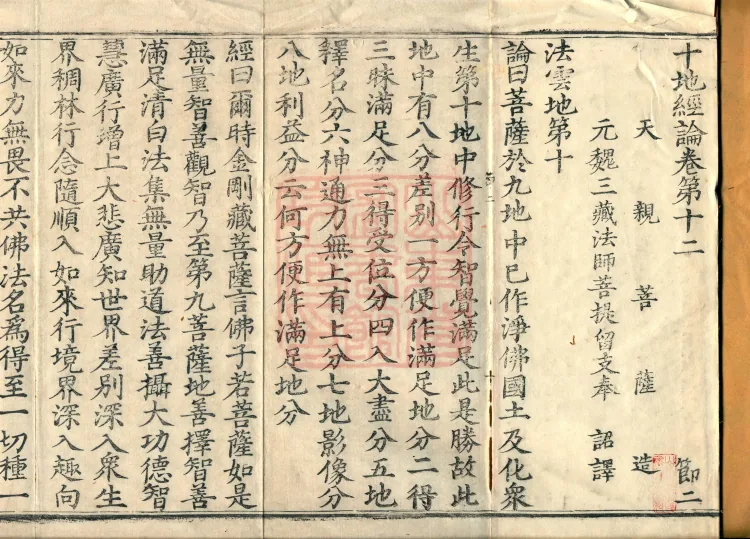 十地經論卷第十二 節二
天親菩薩造
元魏三藏法師菩提留支奉 詔譯
法雲地第十
論曰菩薩於九地中已作淨佛國土及化衆
生第十地中修行令智覺滿足此是勝故此
地中有八分差别一方便作滿足地分二得
三昧滿足分三得受位分四入大盡分五地
釋名分六神通力無上有上分七地影像分
八地利益分云何方便作滿足地分
經曰爾時金剛藏菩薩言佛子若菩薩如是
無量智善觀智乃至第九菩薩地善擇智善
滿足清白法集無量助道法善攝大功德智
慧廣行增上大悲廣知世界差别深入衆生
界稠林行念隨順入如來行境界深入趣向
如來力無畏不共佛法名爲得至一切種一